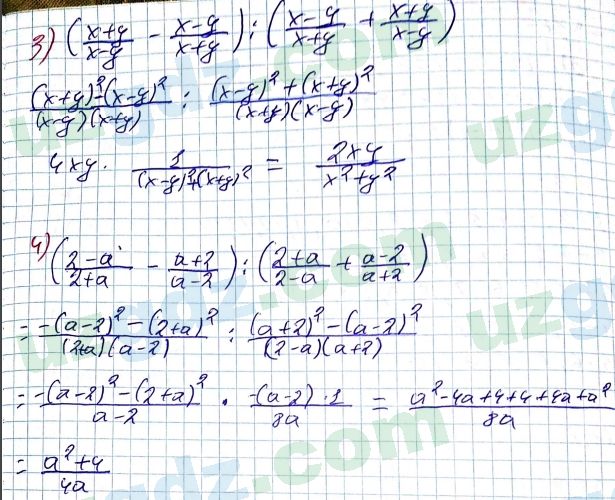 3) ((x+y)/(x-y) - (x-y)/(x+y)) : ((x-y)/(x+y) + (x+y)/(x-y))
((x+y)²-(x-y)²)/((x-y)(x+y)) : ((x-y)²+(x+y)²)/((x+y)(x-y))
4xy · 1/((x-y)²+(x+y)²) = 2xy/(x²+y²)
4) ((2-a)/(2+a) - (a+2)/(a-2)) : ((2+a)/(2-a) + (a-2)/(a+2))
= (-(a-2)²-(2+a)²)/((2+a)(a-2)) : ((a+2)²-(a-2)²)/((2-a)(a+2))
= (-(a-2)²-(2+a)²)/(a-2) · (-(a-2)·1)/(8a) = (a²-4a+4+4+4a+a²)/(8a)
= (a²+4)/(4a)
uzgdz.com